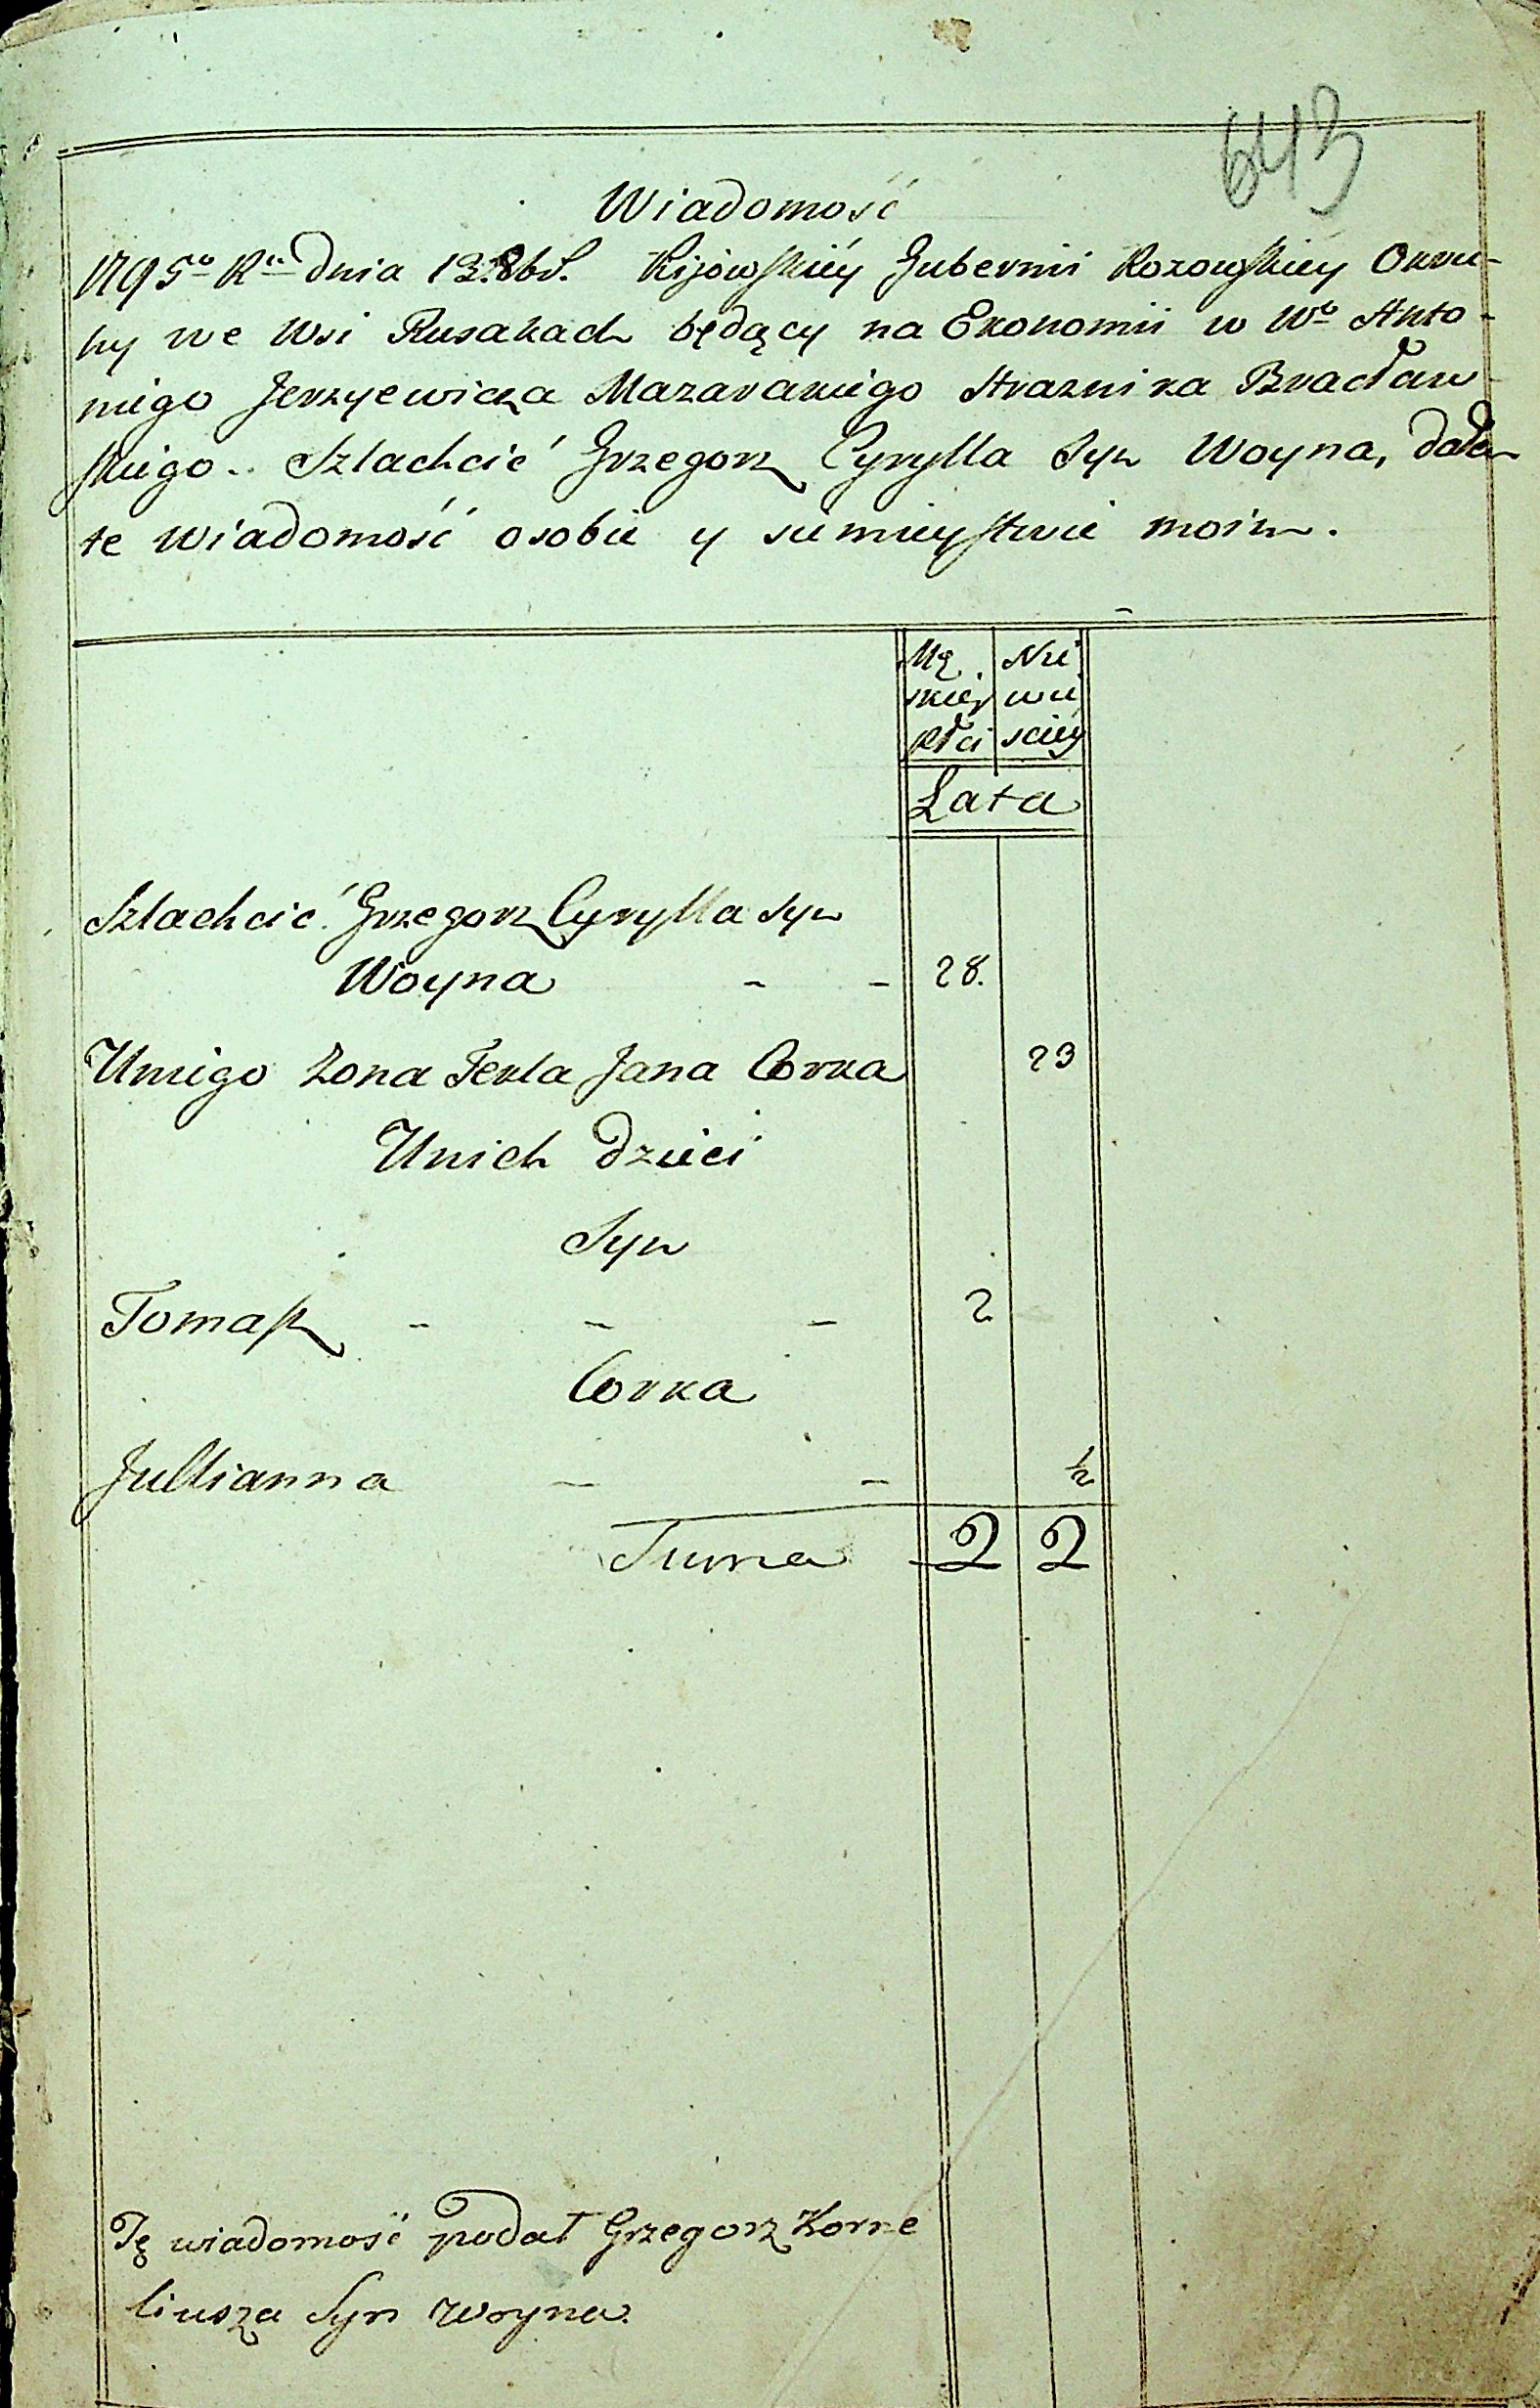 643
Wiadomość
1795º Rº Dnia 13. 8bř. Kijowskiey Gubernii Rozowskiey Okru-
hy we Wsi Rusakach będący na Ekonomii u Wº Anto-
niego Jerzyewicza Mazarakiego Straznika Bracław-
skiego.. Szlachcić Grzegorz Cyrylla Syn Woyna, dałem
te wiadomość osobie y siemieystwie moim.
Mę Nie
skiey wie
płci sciey
Lata
Szlachcić Grzegorz Cyrylla Syn
Woyna - - 28.
Uniego Zona Tekla Jana Corka 23
Unich Dzieci
Syn
Tomasz - - - 2
Corka
Jullianna - - ½
Suma 2 2
Tę wiadomość podał Grzegorz Korne
liusza Syn Woyna.